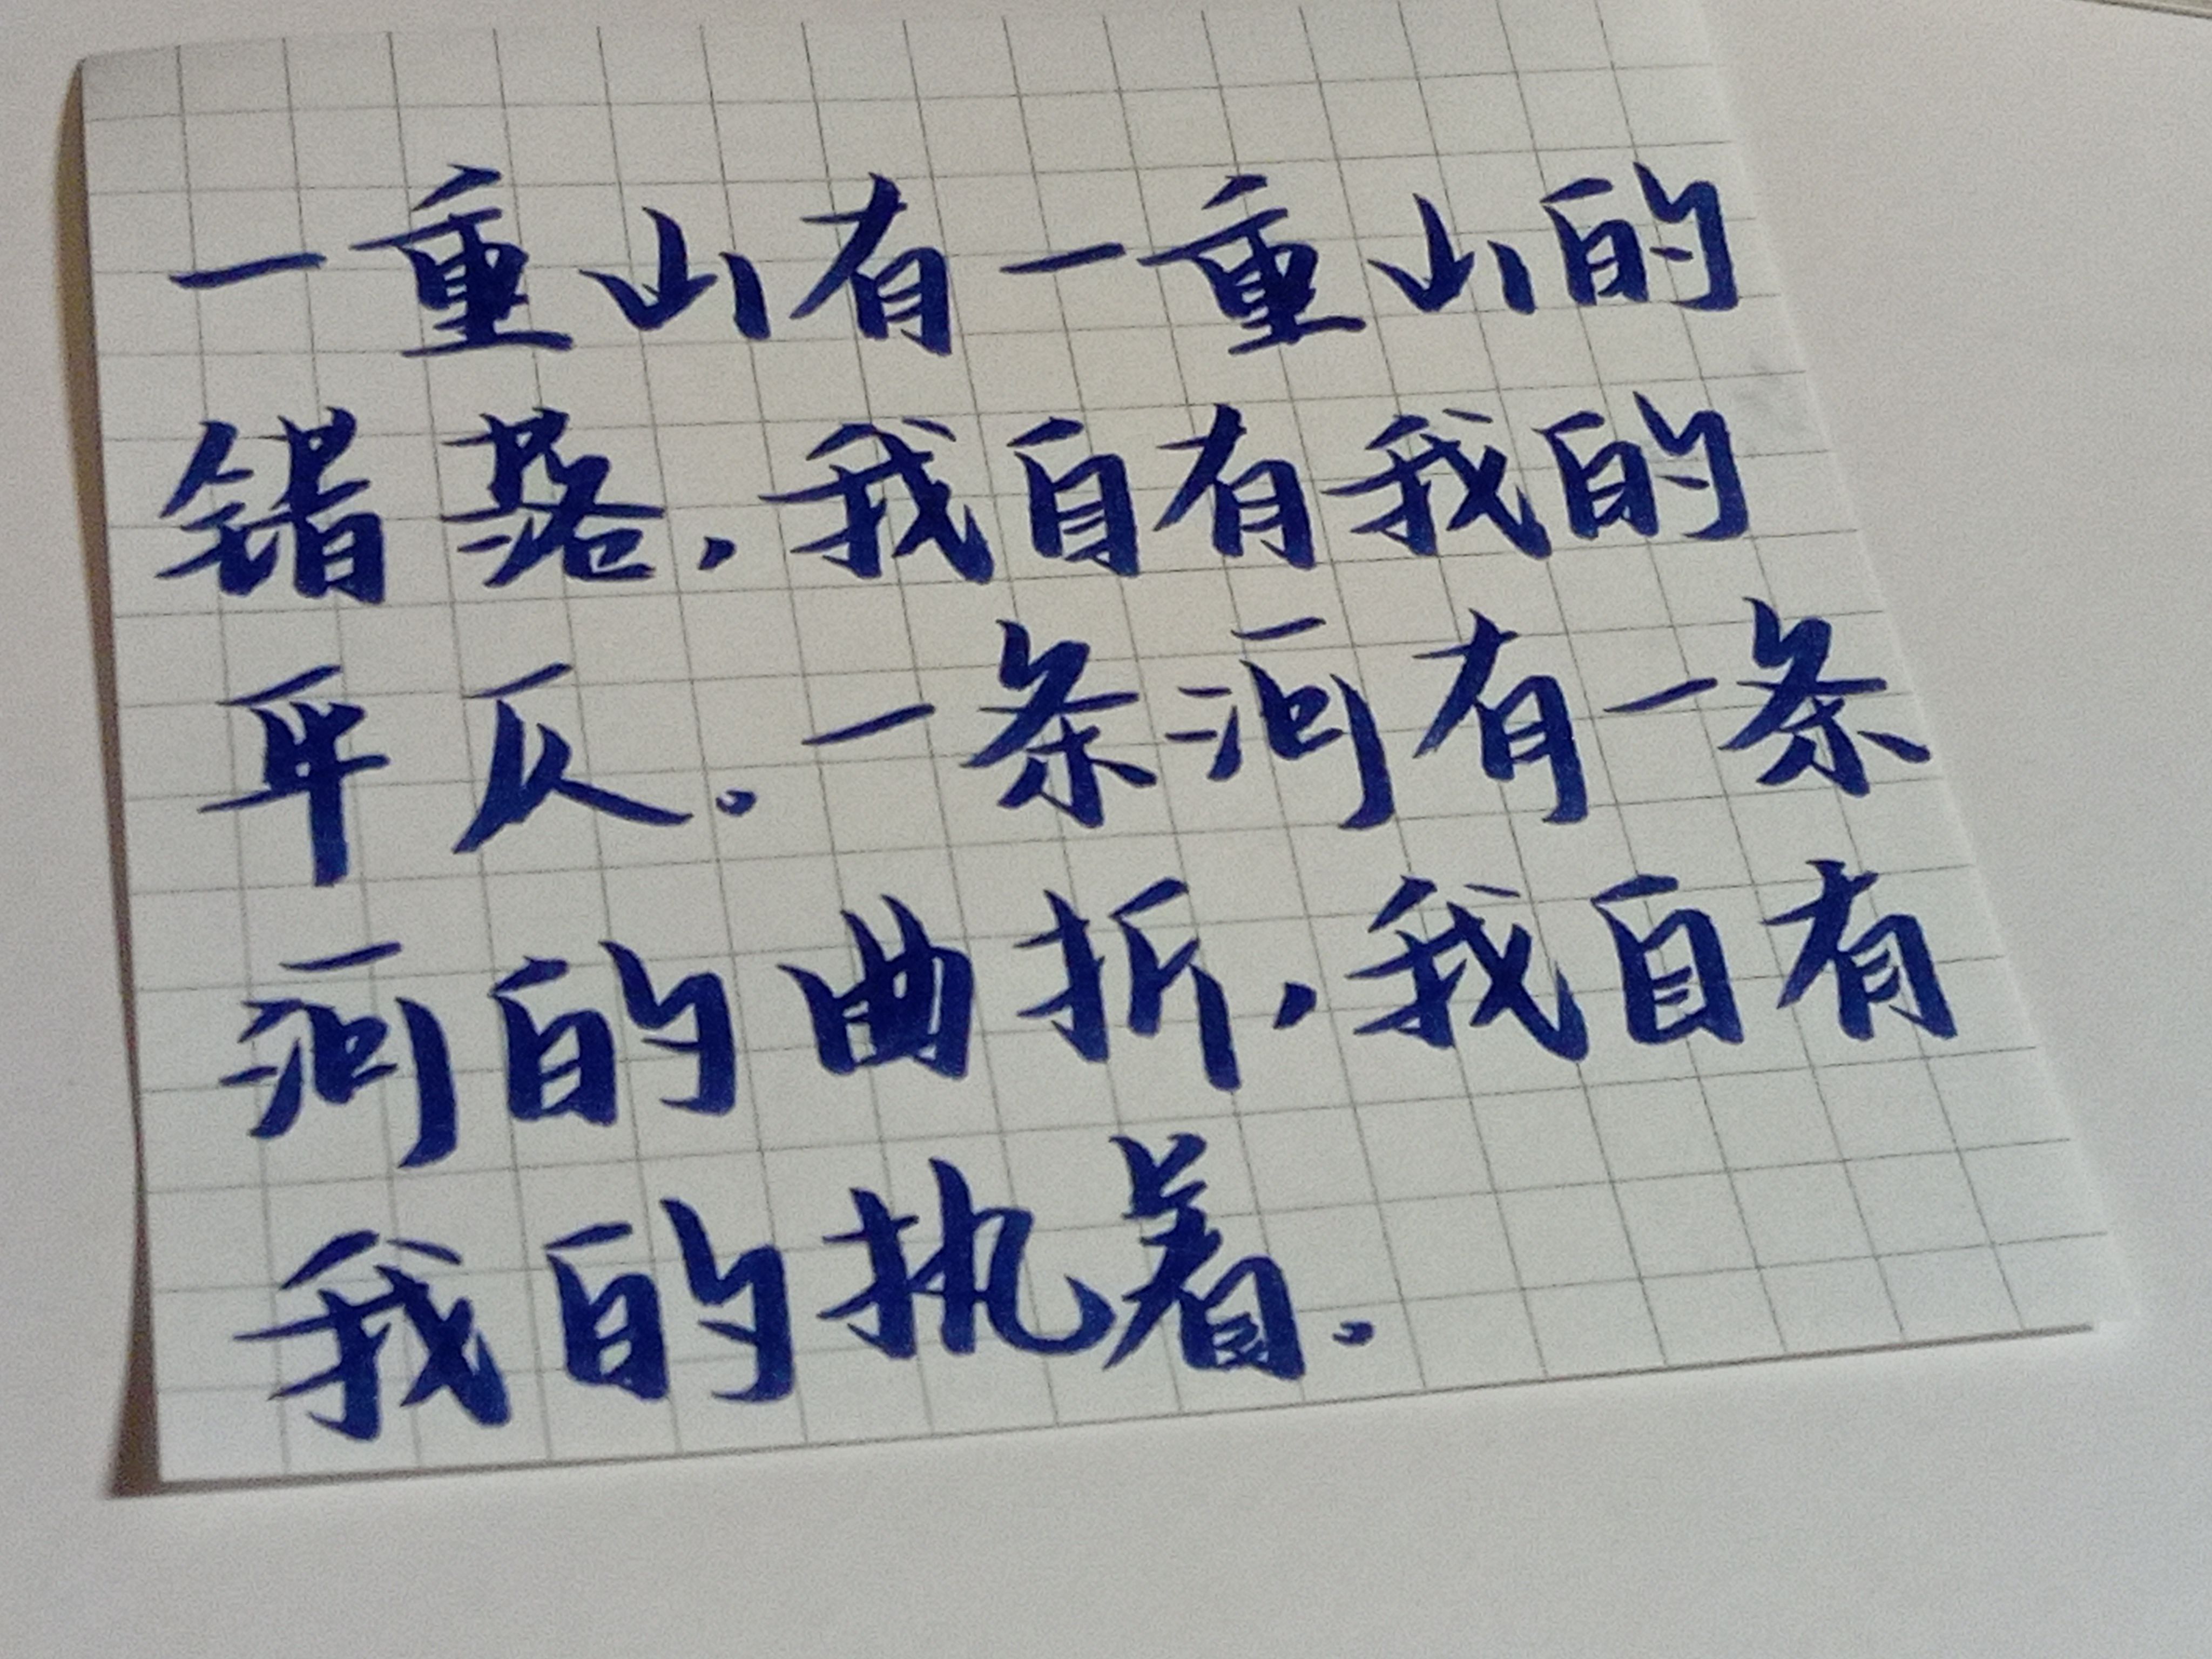 一重山有一重山的
错落，我自有我的
平仄。一条河有一条
河的曲折，我自有
我的执着。